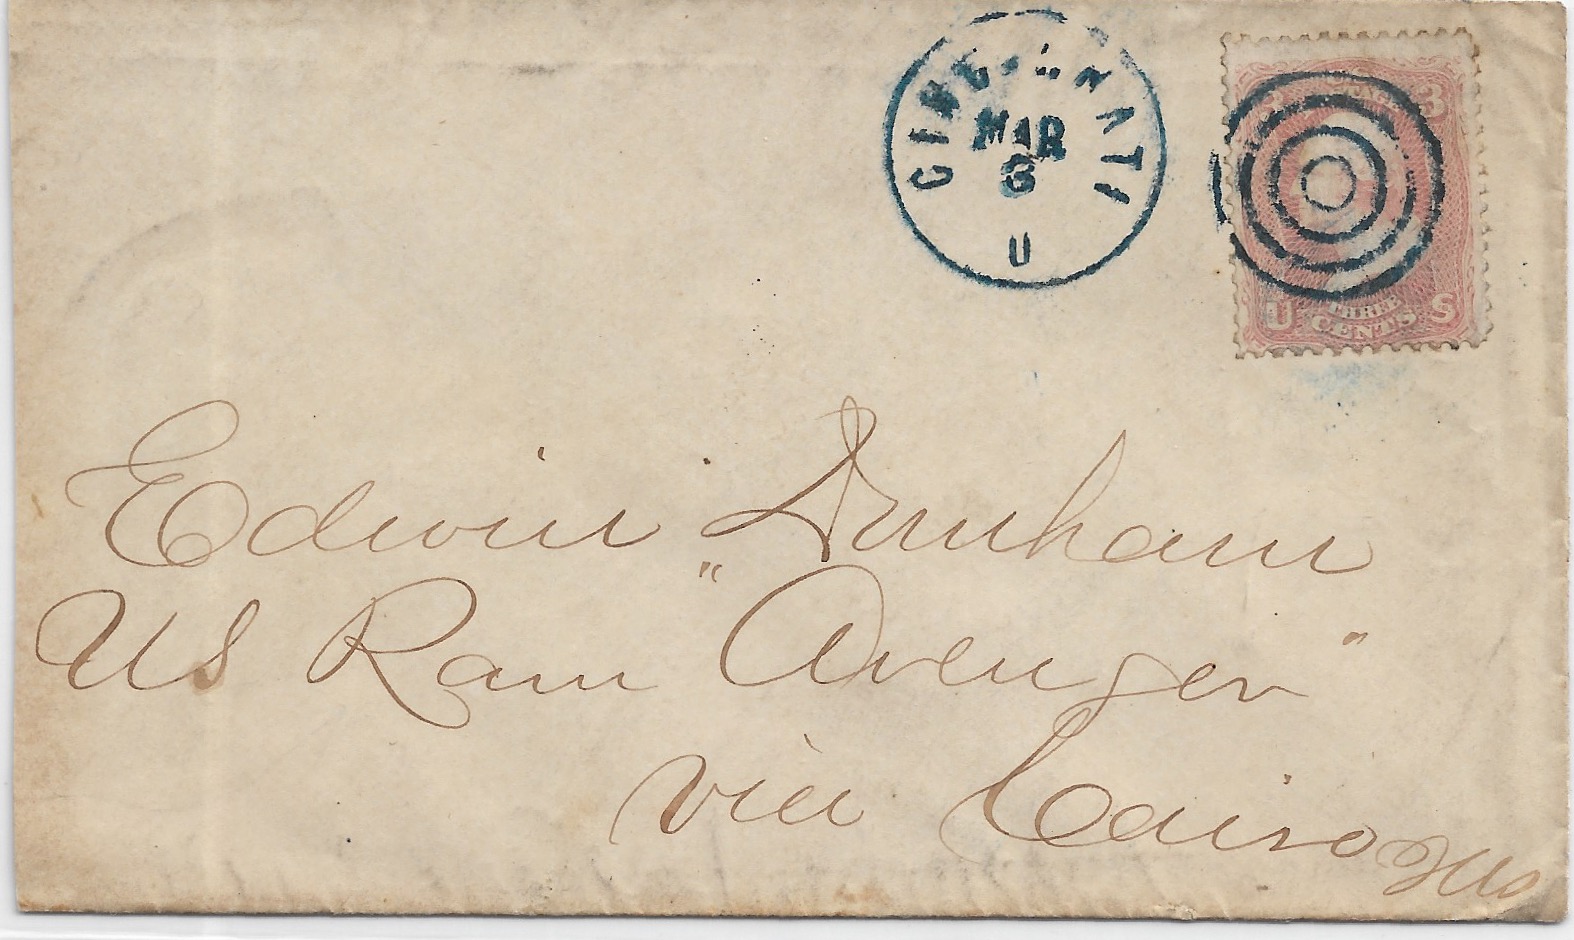 CINCINNATI
MAR
3
U
3 POSTAGE 3
U THREE S
CENTS
Edwin Dunham
US Ram "Avenger"
via Cairo Ills